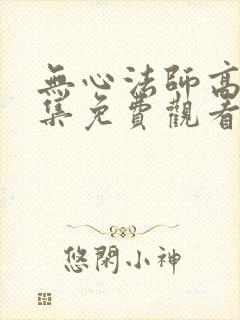 無心法師高
集免費觀看
悠閑小神